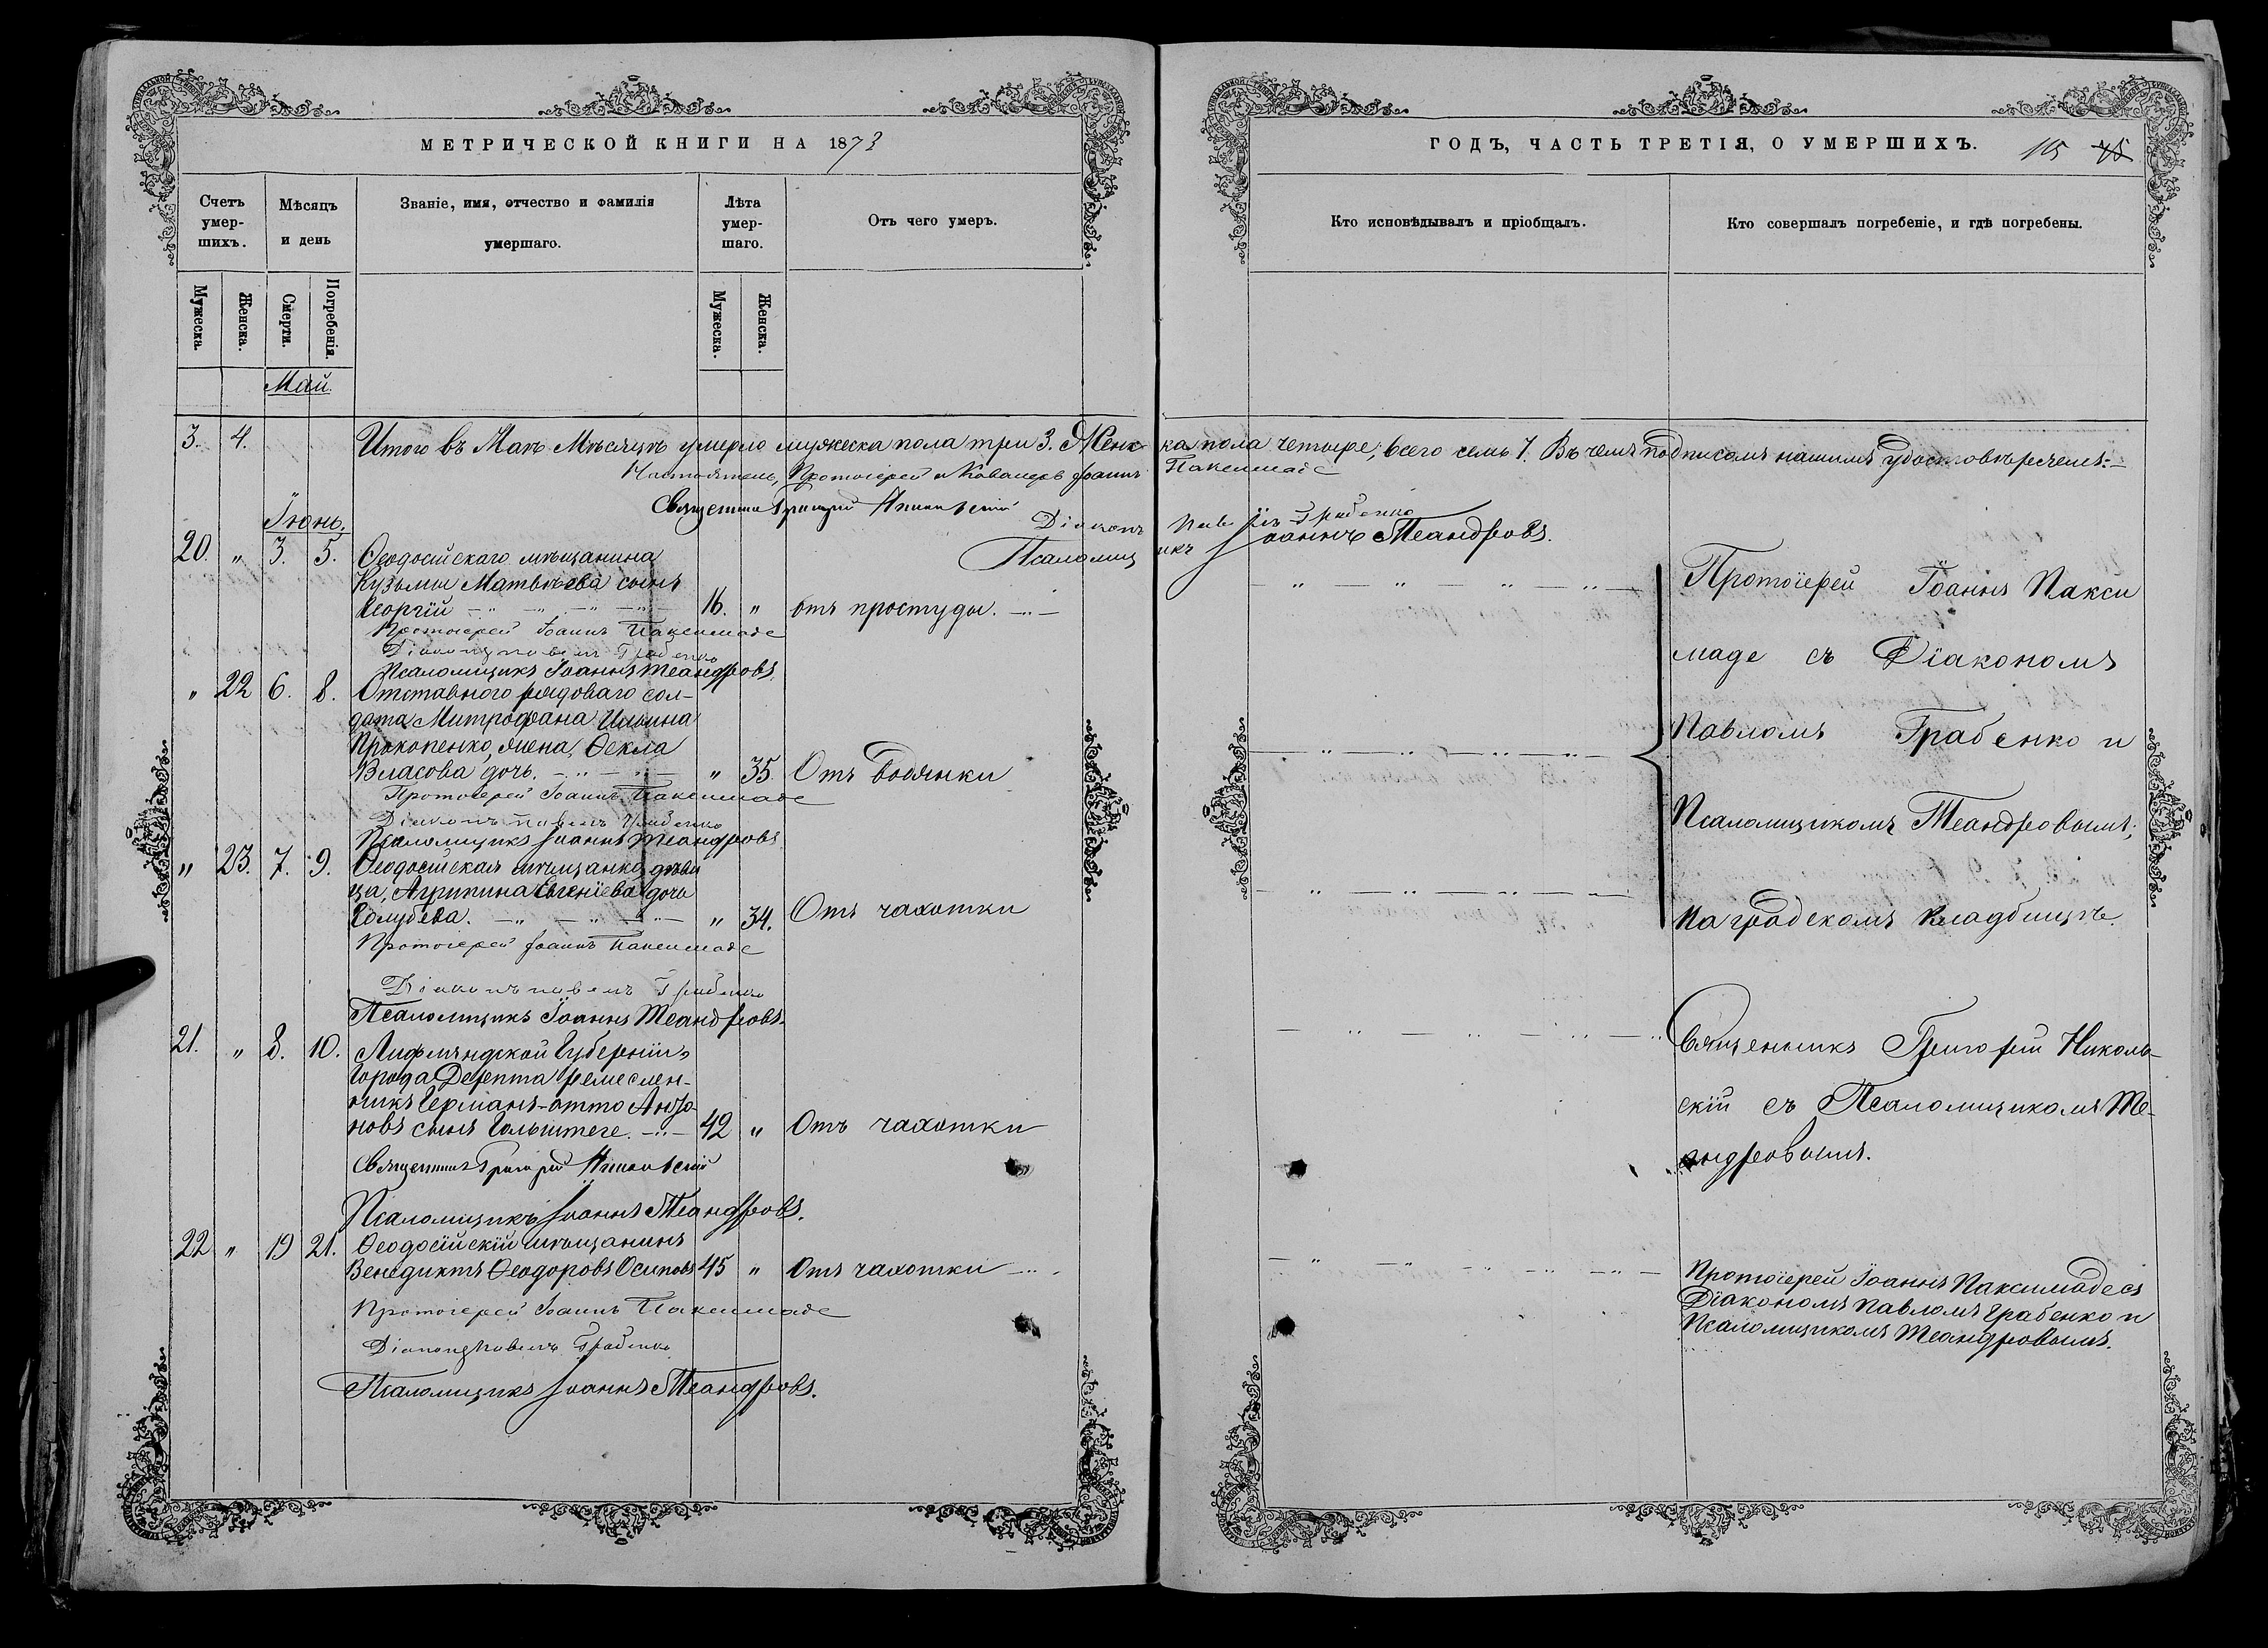 МЕТРИЧЕСКОЙ КНИГИ НА 1873
ГОДЪ, ЧАСТЬ ТРЕТІЯ, О УМЕРШИХЪ.
Счетъ умерших.
Мѣсяцъ и день
Званіе, имя, отчество и фамилія умершаго.
Лѣта умершаго.
Отъ чего умеръ.
Кто исповѣдывалъ и пріобщалъ.
Кто совершалъ погребеніе, и гдѣ погребены.
Мужеска. Женска. Смерти. Погребенія. Мужеска. Женска.
Май.
3. 4. Итого въ Маѣ Мѣсяцѣ умерло мужеска пола три 3. Женска пола четыре; всего семь 7. Въ чемъ подписомъ нашимъ удостовѣряемъ:
Настоятель, Протоіерей и Кавалеръ Іоаннъ Паксимаде
Священникъ Григорій Никольскій
Діаконъ Павелъ Грабенко
Псаломщикъ Іоаннъ Теандровъ.
Іюнь.
20. „ 3. 5. Ѳеодосійскаго мѣщанина
Кузьмы Матвѣева сынъ
Георгій 16. „ отъ простуды.
Протоіерей Іоаннъ Паксимаде
Діаконъ Павелъ Грабенко
Псаломщикъ Іоаннъ Теандровъ
„ 22 6. 8. Отставного рядоваго сол-
дата Митрофана Ильина
Прокопенко, жена, Ѳекла
Власова дочь. „ 35. Отъ водянки
Протоіерей Іоаннъ Паксимаде
Діаконъ Павелъ Грабенко
Псаломщикъ Іоаннъ Теандровъ
„ 23. 7. 9. Ѳеодосійская мѣщанка дѣви
ца, Агрипина Евгеніева дочь
Голубева. „ 34. Отъ чахотки
Протоіерей Іоаннъ Паксимаде
Діаконъ Павелъ Грабенко
Псаломщикъ Іоаннъ Теандровъ.
21. „ 8. 10. Лифляндской Губерніи,
Города Дерпта ремеслен-
никъ Германъ-Отто Анто-
новъ сынъ Гольштеге. 42 „ Отъ чахотки
Священникъ Григорій Никольскій
Псаломщикъ Іоаннъ Теандровъ.
22 „ 19 21. Ѳеодосійскій мѣщанинъ
Венедиктъ Ѳеодоровъ Осиповъ 45 „ Отъ чахотки
Протоіерей Іоаннъ Паксимаде
Діаконъ Павелъ Грабенко
Псаломщикъ Іоаннъ Теандровъ.
Протоіерей Іоаннъ Пакси
маде съ Діакономъ
Павломъ Грабенко и
Псаломщикомъ Теандровымъ;
На градскомъ кладбищѣ.
Священникъ Григорій Николь-
скій съ Псаломщикомъ Те-
андровымъ.
Протоіерей Іоаннъ Паксимаде съ
Діакономъ Павломъ Грабенко и
Псаломщикомъ Теандровымъ.